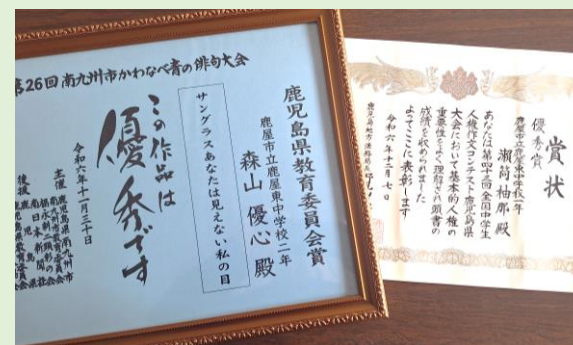 第26回 南九州市かわなべ青の俳句大会
鹿児島県教育委員会賞
鹿屋市立鹿屋東中学校二年
森山 優心 殿
サングラスあなたは見えない私の目
この作品は
優秀です
令和六年十一月三十日
主催
後援
賞状
優秀賞
鹿屋市立鹿屋東中学校一年
殿
あなたは第四十三回 全国中学生
人権作文コンテスト鹿児島県
大会において基本的人権の
重要性をよく理解され頭書の
成績を収められました
よってここに表彰します
令和六年十二月七日